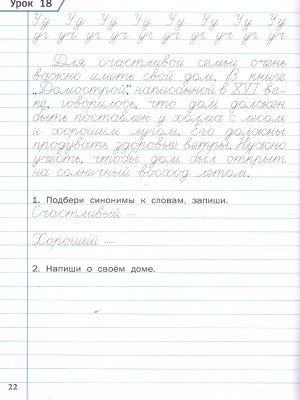 Урок 18
Уу Уу Уу Уу Уу Уу Уу Уу
уг уч уг уч уг уч уг уч уг уч
Для счастливой семьи очень
важно иметь свой дом. В книге
„Домострой", написанной в XVI ве-
ке, говорилось, что дом должен
быть поставлен у холма с лесом
и хорошим лугом. Его должны
продувать здоровые ветры. Нужно
учесть, чтобы дом был открыт
на солнечный восход летом.
1. Подбери синонимы к словам, запиши.
Счастливый ....
Хороший ....
2. Напиши о своём доме.
22